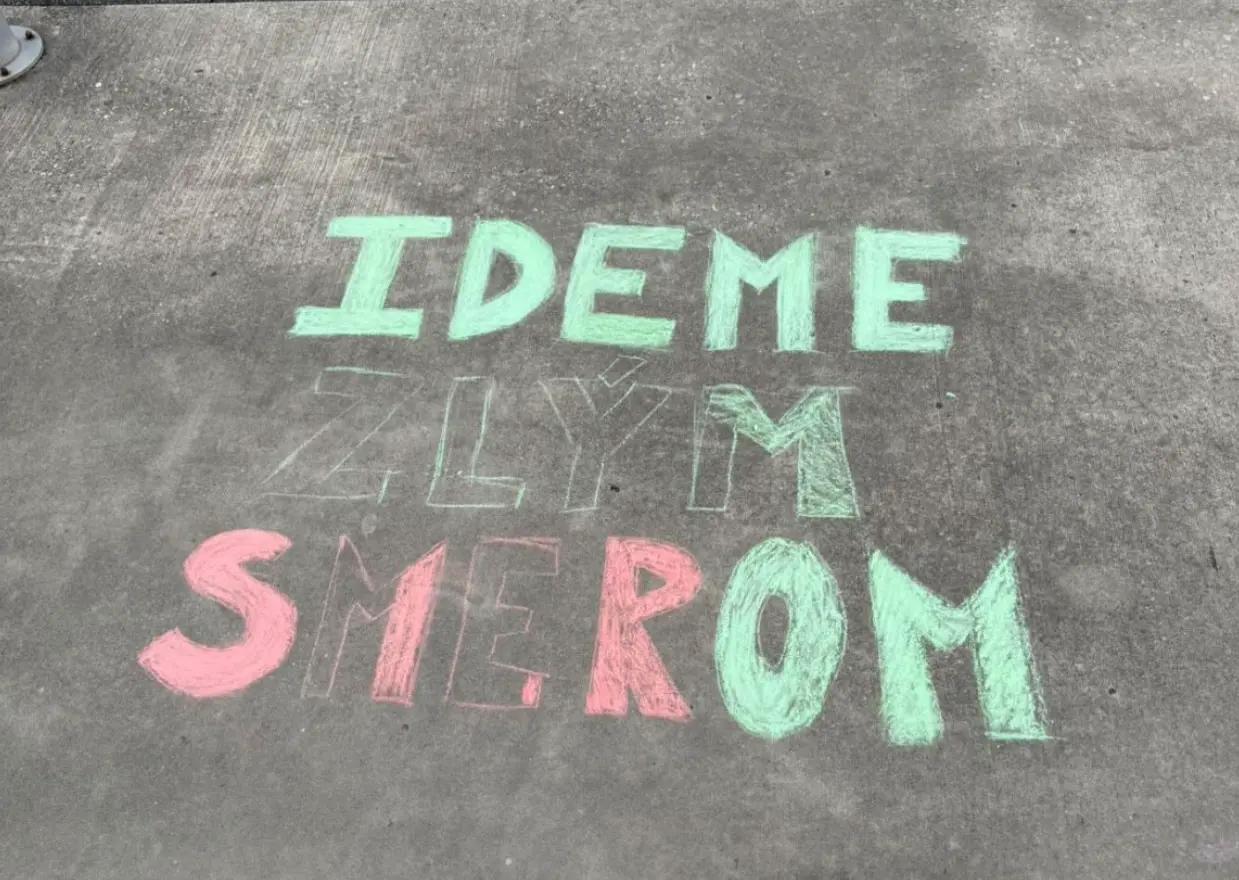 IDEME
ZLÝM
SMEROM